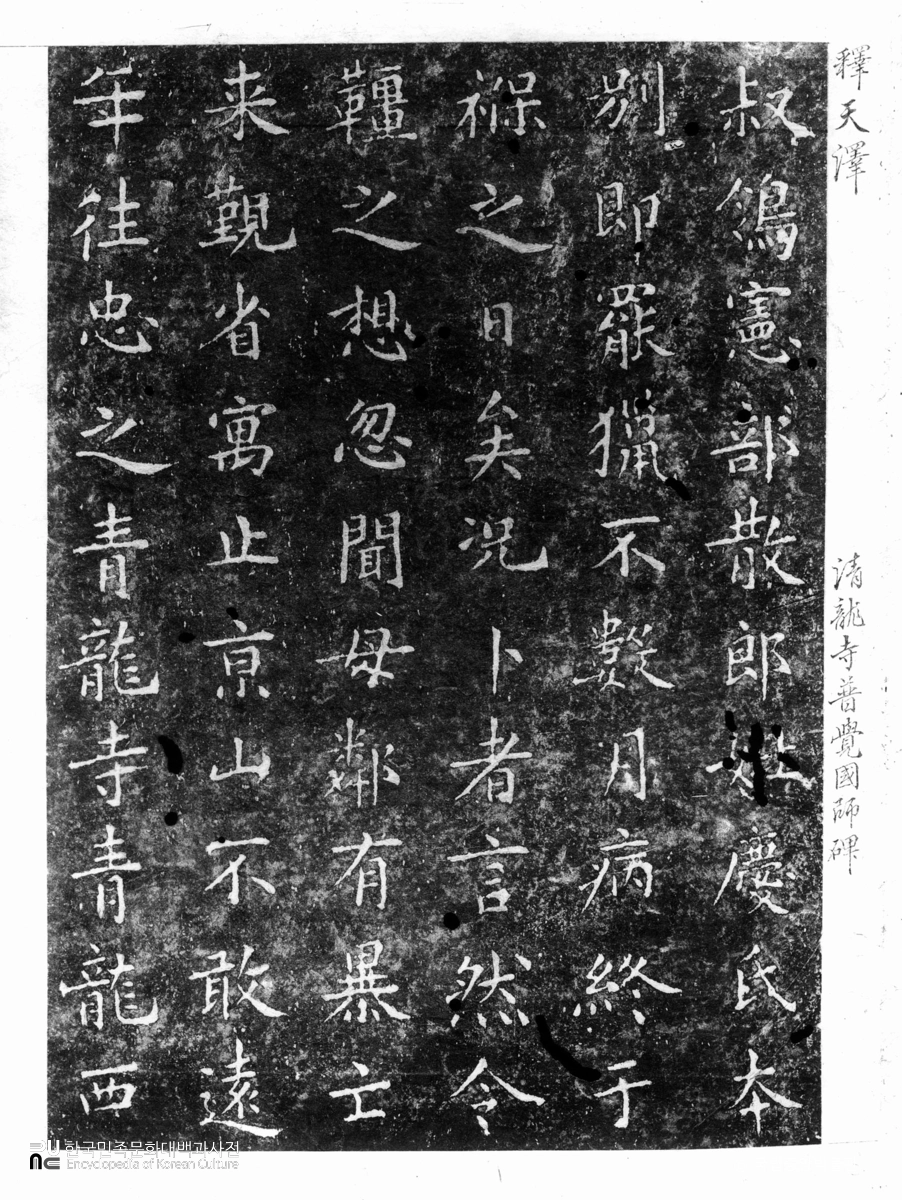 釋天澤
清龍寺普覺國師碑
叔鴒憲部散郎妣慶氏本
別即罷獵不數月病終于
褓之日矣況卜者言然令
韁之想忽聞母鄰有暴亡
来覲省寓止京山不敢遠
年往忠之青龍寺青龍西
한국민족문화대백과사전
Encyclopedia of Korean Culture